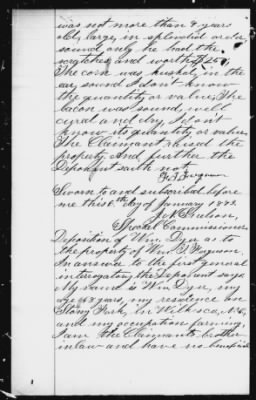 was not more than 8 years
old, large, in splendid order
sound, only he had the
scratches, and worth $125.
The corn was husked, in the
ear, sound. I don't know
the quantity or value. The
bacon was sound, well
cured and dry, I don't
know its quantity or value.
The Claimant raised the
property. And further the
Deponent saith not
Ferguson
Sworn to and subscribed before
me this 6th day of January 1873.
Special Commissioner.
Deposition of Wm. Dyer as to
the property of Wm. Ferguson.
In answer to the first general
interrogatory the Deponent says:
My name is Wm Dyer, my
age 68 years, my residence on
Stony Fork, in Wilkes co, N.C,
and my occupation farming,
I am the Claimants brother-
in law - and have no beneficial